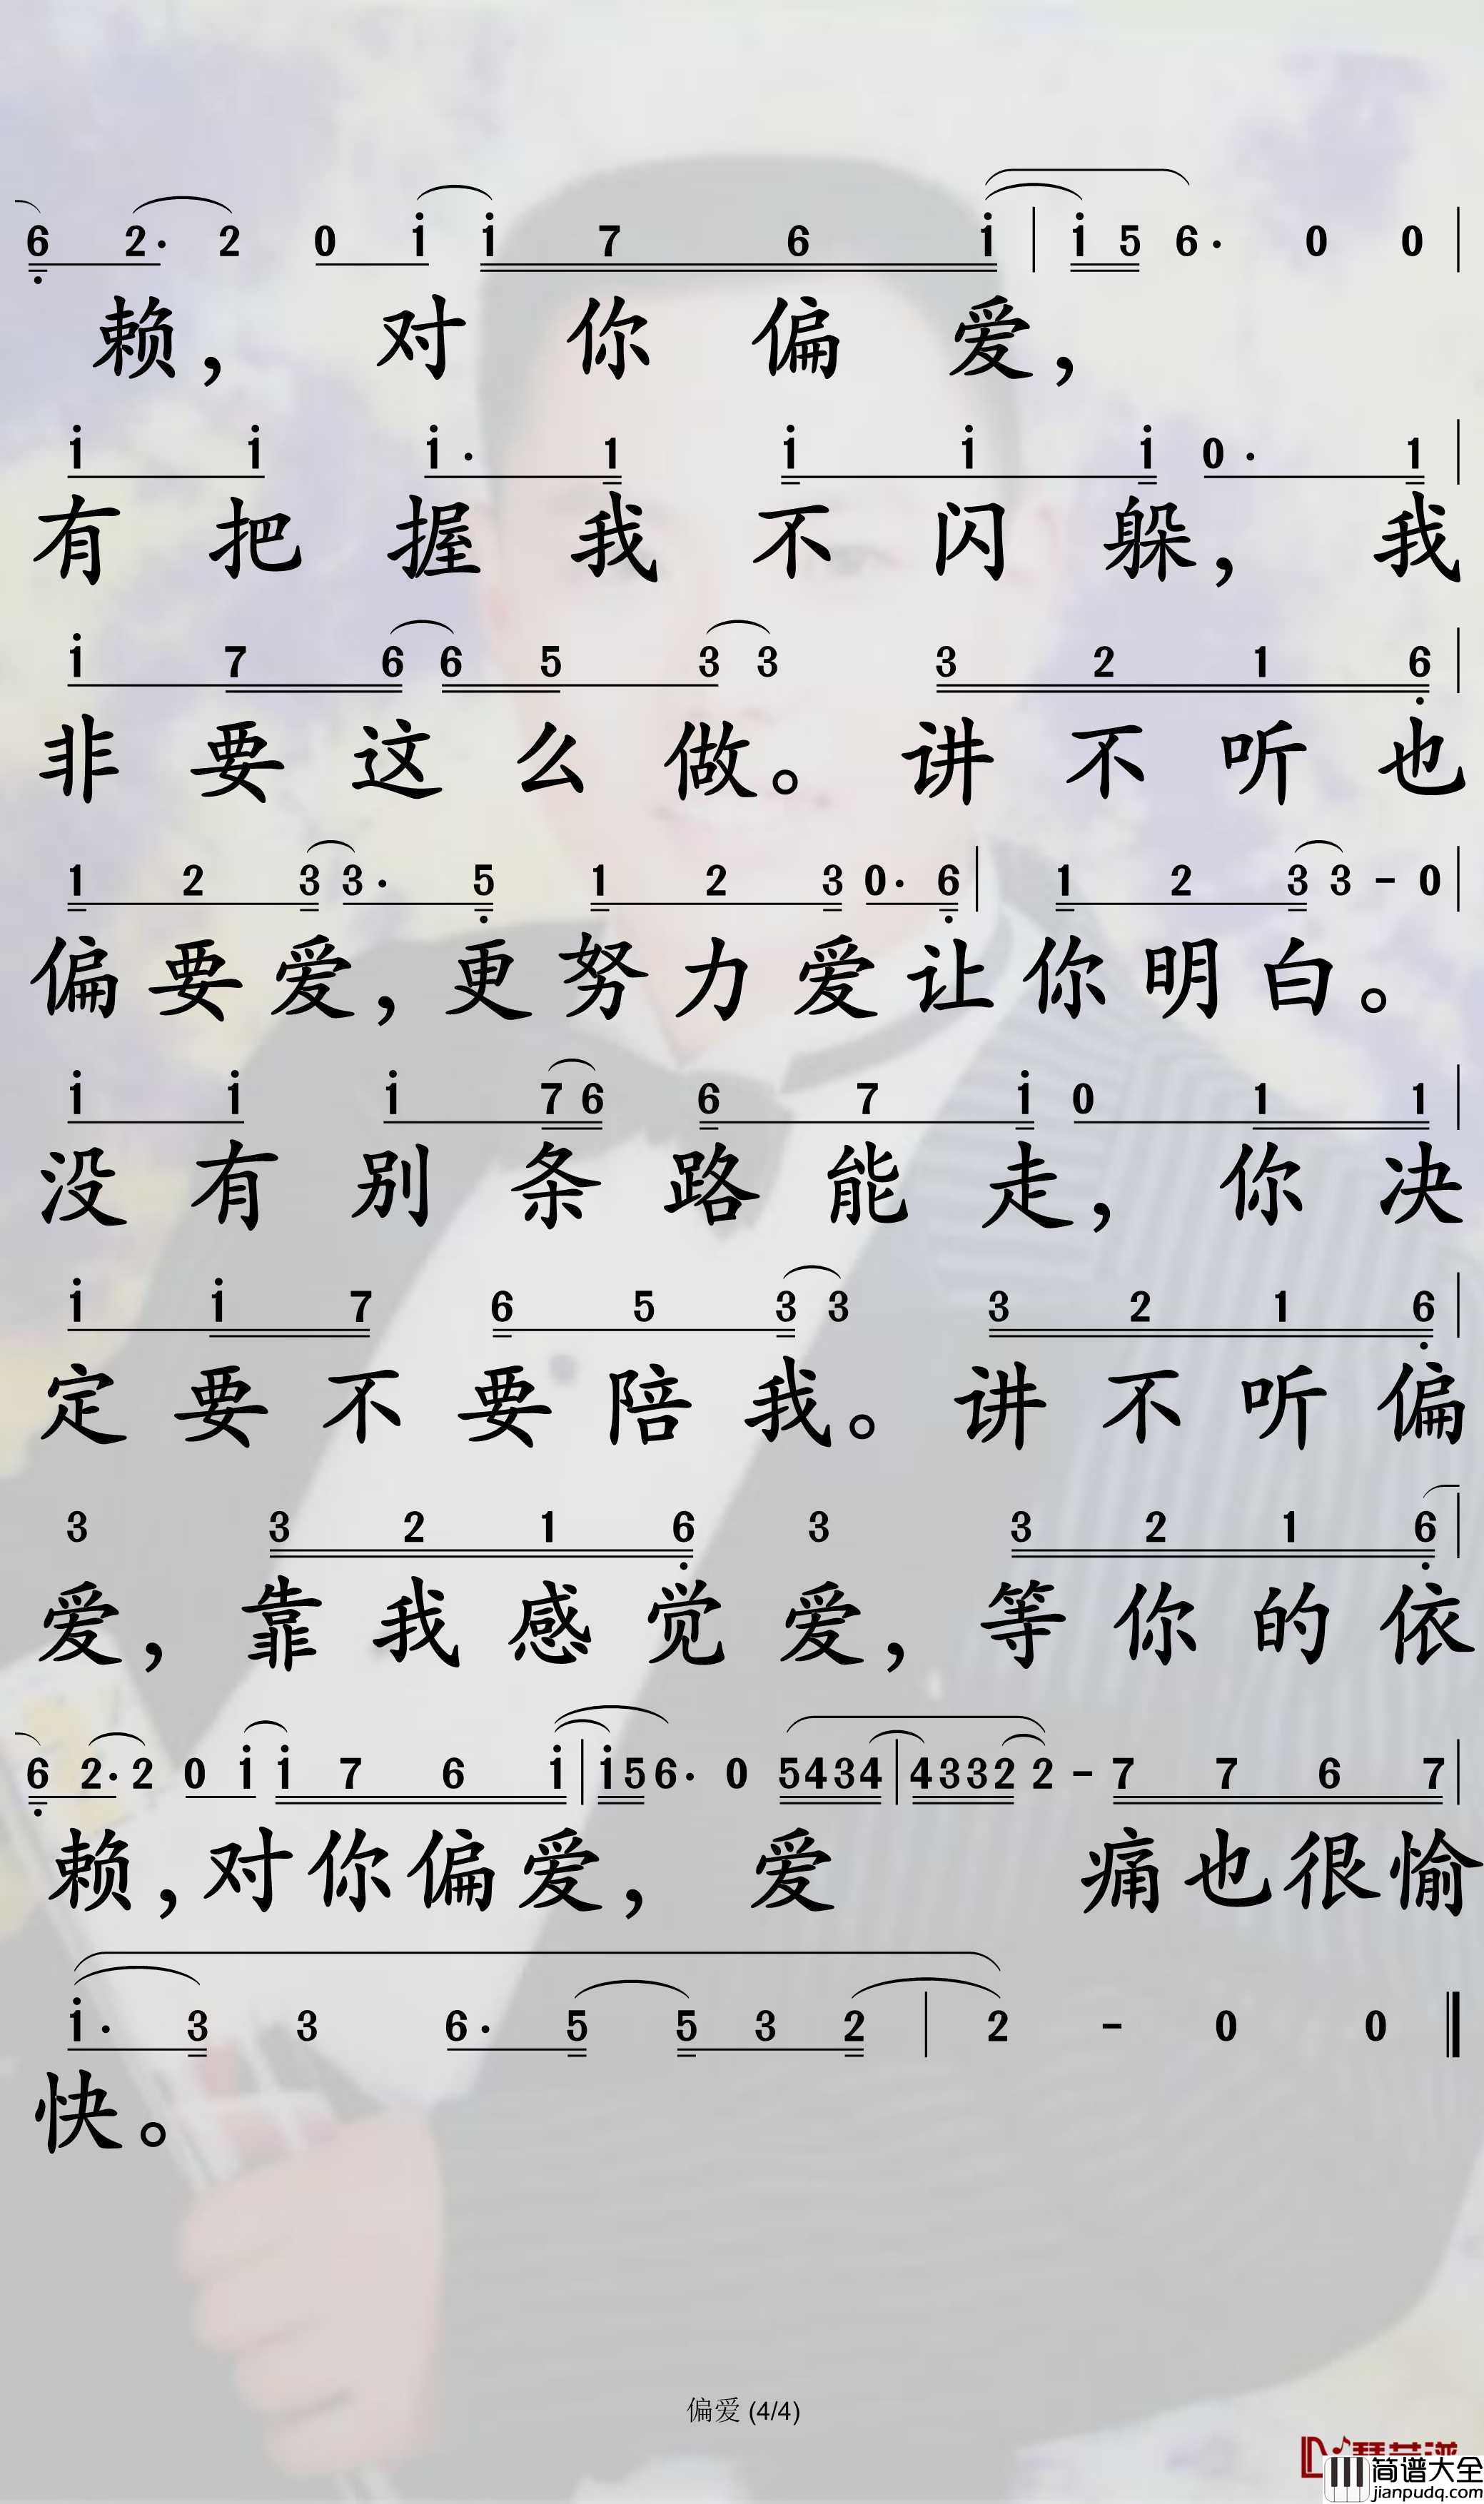 6 2· 2 0 i i 7 6 i | i 5 6· 0 0 |
赖，对你偏爱，
i i i· 1 i i i 0· 1 |
有把握我不闪躲，我
i 7 6 6 5 3 3 3 2 1 6 |
非要这么做。讲不听也
1 2 3 3· 5 1 2 3 0· 6 | 1 2 3 3 - 0 |
偏要爱，更努力爱让你明白。
i i i 7 6 6 7 i 0 1 1 |
没有别条路能走，你决
i i 7 6 5 3 3 3 2 1 6 |
定要不要陪我。讲不听偏
3 3 2 1 6 3 3 2 1 6 |
爱，靠我感觉爱，等你的依
6 2· 2 0 i i 7 6 i | i 5 6· 0 5 4 3 4 | 4 3 3 2 2 - 7 7 6 7 |
赖，对你偏爱，爱 痛也很愉
i· 3 3 6· 5 5 3 2 | 2 - 0 0 ‖
快。
偏爱 (4/4)
简谱大全
jianpudq.com